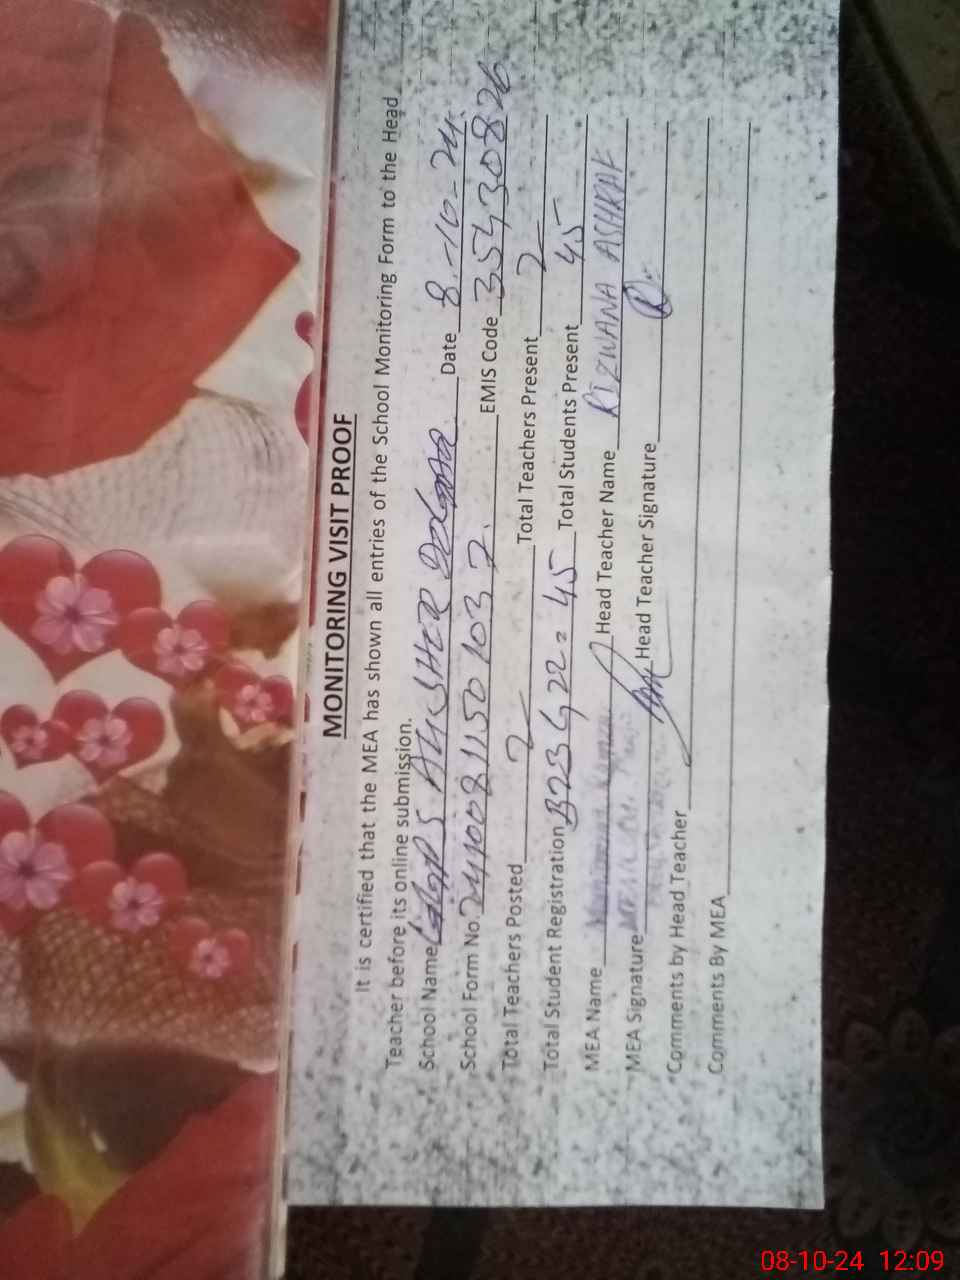 MONITORING VISIT PROOF
It is certified that the MEA has shown all entries of the School Monitoring Form to the Head
Teacher before its online submission.
School Name Date 8-10-24
School Form No. EMIS Code 35430826
Total Teachers Posted 2 Total Teachers Present 2
Total Student Registration = 45 Total Students Present 45
MEA Name Head Teacher Name RIZWANA ASHRAF
MEA Signature Head Teacher Signature
Comments by Head Teacher
Comments By MEA
08-10-24 12:09